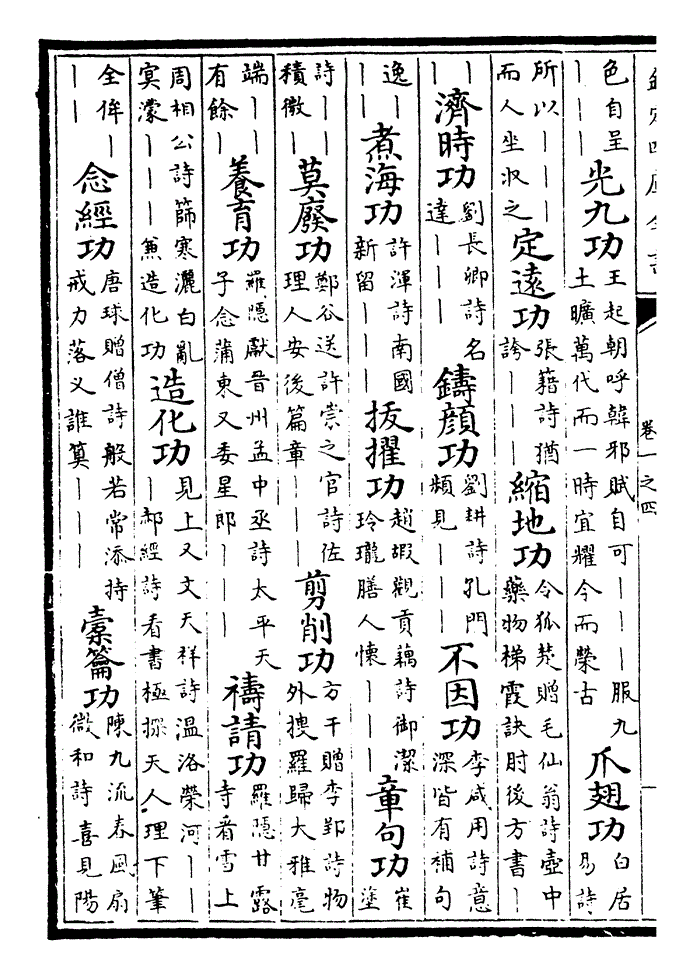 欽定四庫全書
卷一之四
色自呈
｜｜｜
光九功
王起朝呼韓邪賦自可｜｜｜服九
土曠萬代而一時宜耀今而榮古
爪翅功
白居
易詩
所以｜｜｜
而人坐収之
定遠功
張籍詩猶
誇｜｜｜
縮地功
令狐楚贈毛仙翁詩壺中
藥物梯霞訣肘後方書｜
｜
｜
濟時功
劉長卿詩名
達｜｜｜
鑄顔功
劉耕詩孔門
頻見｜｜｜
不因功
李咸用詩意
深皆有補句
逸｜
｜｜
煮海功
許渾詩南國
新留｜｜｜
拔擢功
趙嘏觀貢藕詩御潔
玲瓏膳人懷｜｜｜
章句功
崔
塗
詩｜｜｜
積微｜
莫廢功
鄭谷送許崇之官詩佐
理人安後篇章｜｜｜
剪削功
方干贈李郢詩物
外搜羅歸大雅毫
端｜｜
有餘｜
養育功
羅隠獻晉州孟中丞詩太平天
子念蒲東又委星郎｜｜｜
禱請功
羅隠甘露
寺看雪上
周相公詩篩寒灑白亂
㝠濛｜｜｜兼造化功
造化功
見上又文天祥詩温洛榮河｜｜
｜郝經詩看書極探天人理下筆
全侔｜
｜｜
念經功
唐球贈僧詩般若常添持
戒力落乂誰算｜｜｜
橐籥功
陳九流春風扇
微和詩喜見陽